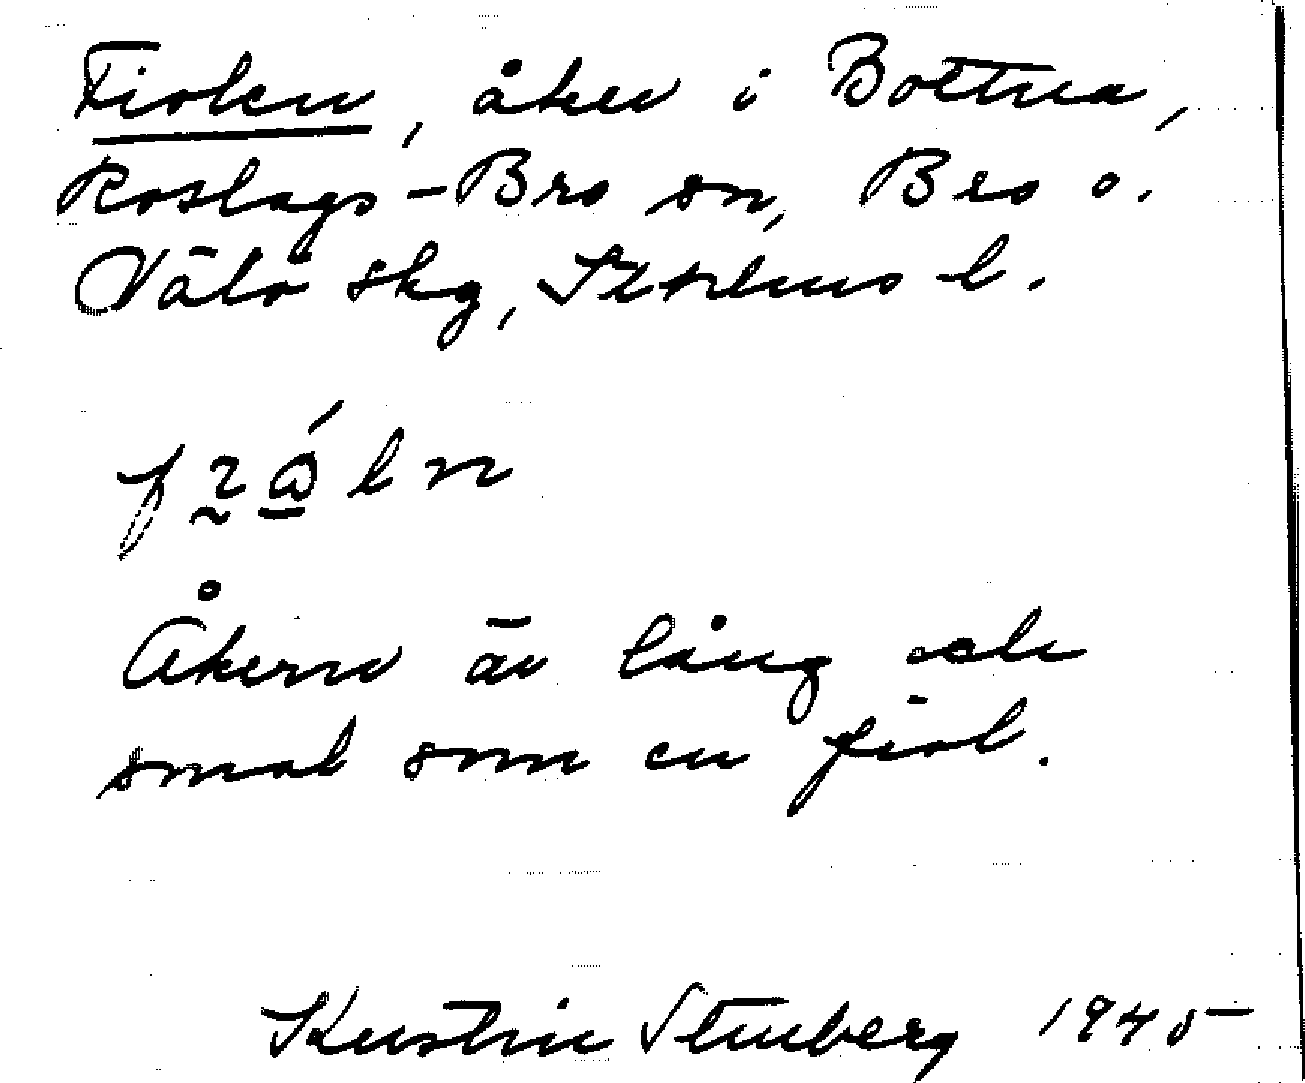 Fiolen, åker i Bottna,
Roslags-Bro sn, Bro o.
Vätö skg, Stockholms l.
Åkern är lång och
smal som en fiol.
Kerstin Stenberg 1945